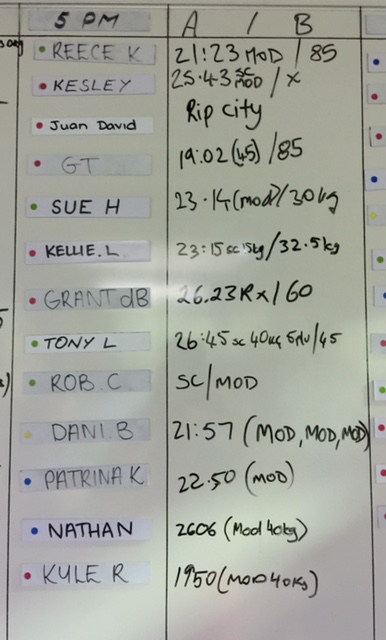 5 PM A / B
REECE K 21:23 MOD / 85
KESLEY 25:43 SC MOD / X
Juan David Rip city
GT 19:02 (45) / 85
SUE H 23.14 (mod) / 30kg
KELLIE.L 23:15 sc 15kg / 32.5kg
GRANT dB 26.23 Rx / 60
TONY L 26:45 sc 40kg / 45
ROB.C SC/MOD
DANI.B 21:57 (MOD, MOD, MOD)
PATRINA K 22.50 (MOD)
NATHAN 2606 (Mod 40kg)
KYLE R 1950 (MOD 40kg)